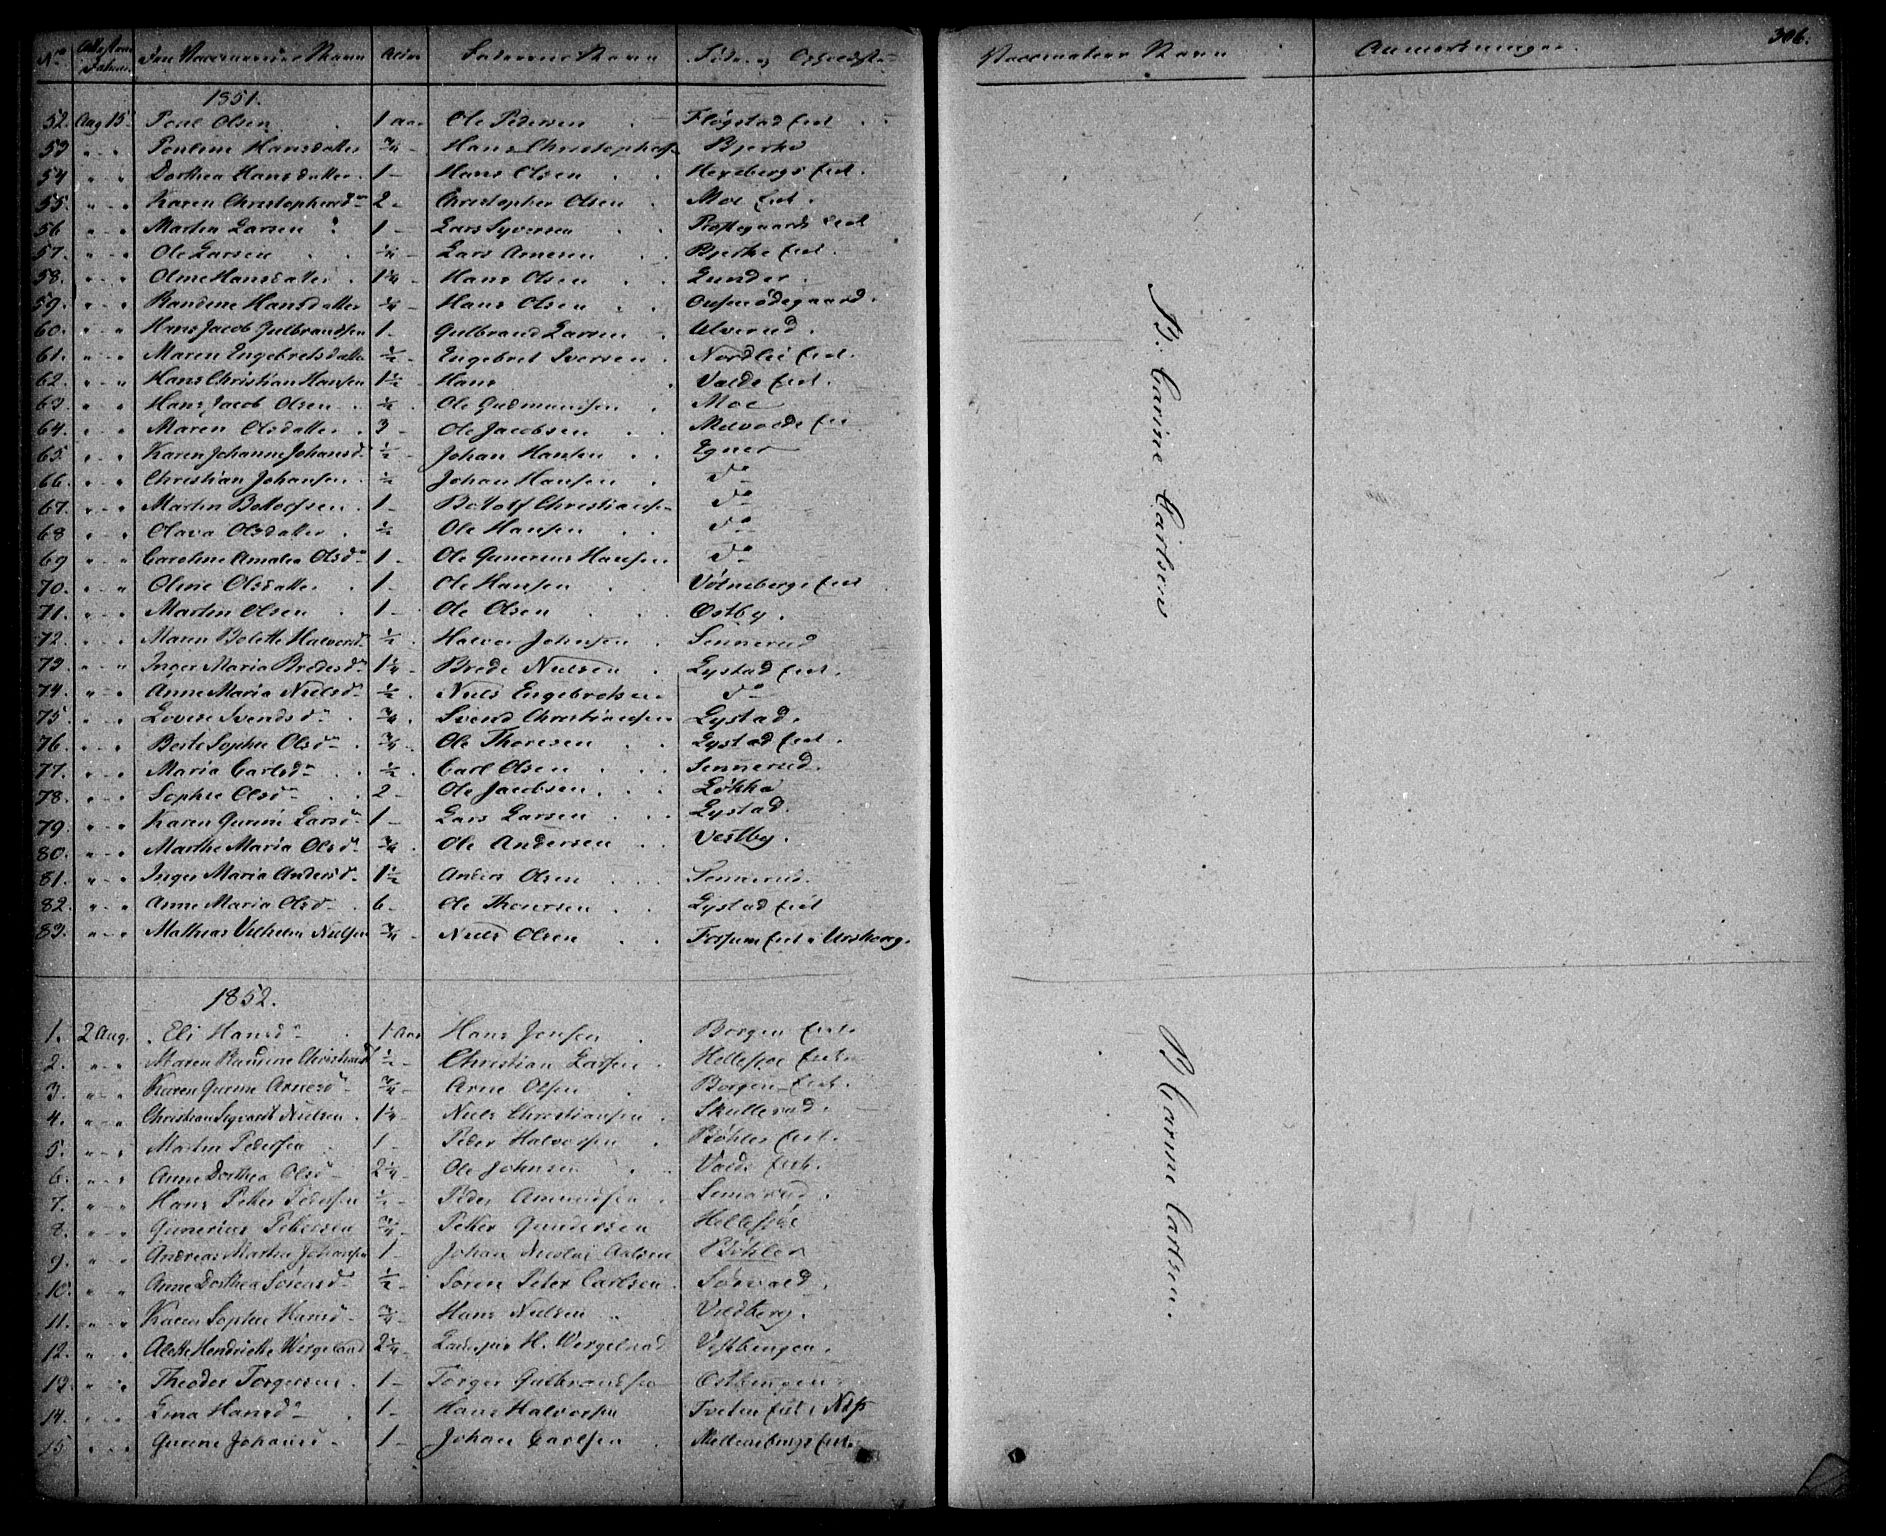 No Attestens Datum Den Vaccineredes Navn Alder Faderens Navn Føde- og Opholdsted Vaccinateur Navn Anmærkninger. 306.
1851.
52. Aug 15 Poul Olsen 1 Aar Ole Pedersen Flogstad Eiet
53 " - " Pouline Hansdatter 3/4 - Hans Christophersen Bjerke
54 " - " Dorthea Hansdatter 1 - Hans Olsen Hexebergs Eiet.
55 " - " Karen Christophersd - 2 - Christopher Olsen Moe Eiet.
56 " - " Martin Larsen 1 - Lars Syversen Eiet
57. " - " Ole Larsen Lars Arnesen Bjerke Eiet.
58. " - " Oline Hansdatter 1 1/4 - Hans Olsen Lunder.
59. " - " Randine Hansdatter Hans Olsen
60. " - " Hans Jacob Gulbrandsen 1 - Gulbrand Larsen Ulverud.
61. " - " Maren Engebretsdatter 1/2 - Engebret Iversen Nordlie Eiet.
62. " - " Hans Christian Hansen 1 1/2 - Hans Valde Eiet.
63. " - " Hans Jacob Olsen Ole Gudmundsen Moe
64. " - " Maren Olsdatter 3 - Ole Jacobsen Melvolde Eie
65. " - " Karen Johanne Johansd 1/2 - Johan Hansen Egner
66. " - " Christian Johansen 1/2 Johan Hansen Do
67. " - " Martin Botolfsen 1 - Botolf Christiansen Do
68 " - " Olava Olsdatter 1/2 Ole Hansen Do
69 " - " Caroline Amalia Olsd - 1 - Ole Gunerius Hansen Do
70. " - " Oline Olsdatter 1 - Ole Hansen Eiet
71. " - " Martin Olsen 1 - Ole Olsen Østby.
72. " - " Maren Bolette Halvorsd 1/2 Halvor Johnsen Sennerud
73. " - " Inger Maria Bredesd - 1 1/4 - Brede Nielsen Lystad Eiet.
74. " - " Anne Maria Nielsd - 1/2 Niels Engebretsen Do
75. " - " Lovise Svendsd - 3/4 Svend Christiansen Lystad.
76. " - " Berte Sophie Olsd - 3/4 Ole Thoresen Lystad Eiet.
77. " - " Maria Carlsd - 1/2 Carl Olsen Sennerud.
78. " - " Sophie Olsd - 2 - Ole Jacobsen Løkka
79. " - " Karen Gurine Larsd - 1 - Lars Larsen Lystad.
80. " - " Marthe Maria Olsd - 3/4 Ole Andersen Vestby.
81. " - " Inger Maria Andersd - 1 1/2 Anders Olsen Sennerud.
82. " - " Anne Maria Olsd - 6 - Ole Thoresen Lystad Eiet
83. " - " Mathias Vilhelm Nielsen 3/4 - Niels Olsen Fossum Eiet i Urskoug.
B. Carine Carlsen
1852.
1. 2 Aug. Eli Hansd - 1 Aar Hans Jensen Borgen Eiet.
2. " - " Maren Randine Christiansd 1/2 - Christian Larsen Hellesjøe Eiet
3. " - " Karen Gurine Arnesd - 3/4 - Arne Olsen Borgen Eiet.
4. " - " Christian Sigvardt Nielsen 1 1/4 - Niels Christiansen Skullerud.
5. " - " Martin Pedersen 1 - Peder Halvorsen Bøhler Eiet.
6. " - " Anne Dorthea Olsd - 2 1/4 - Ole Johnsen Valde Eiet.
7. " - " Hans Petter Pedersen 1/2 - Peder Amundsen Sennerud.
8. " - " Gunerius Pettersen 3/4 - Petter Gundersen Hellesjøe
9. " - " Andreas Martin Johansen 1 - Johan Nicolai Aalsen Bøhler
10. " - " Anne Dorthea Sørensd - 1/2 - Søren Peter Carlsen Sørvald.
11. " - " Karen Sophie Hansd - 3/4 - Hans Nielsen Vildberg.
12. " - " Alette Hendrikke Wergeland 2 1/4 - H. Wergeland Vestbengen.
13. " - " Theodor Torgersen 1 - Torger Gulbrandsen Østbengen
14. " - " Lina Hansd - 1 - Hans Halvorsen Tveten Eiet i Næs
15 " - " Gurine Johansd - 1 - Johan Carlsen Eiet.
B Carine Carlsen.